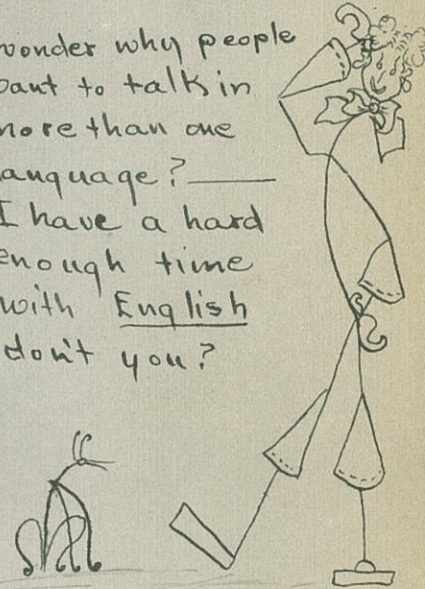 wonder why people
want to talk in
more than one
language?
I have a hard
enough time
with English
don't you?